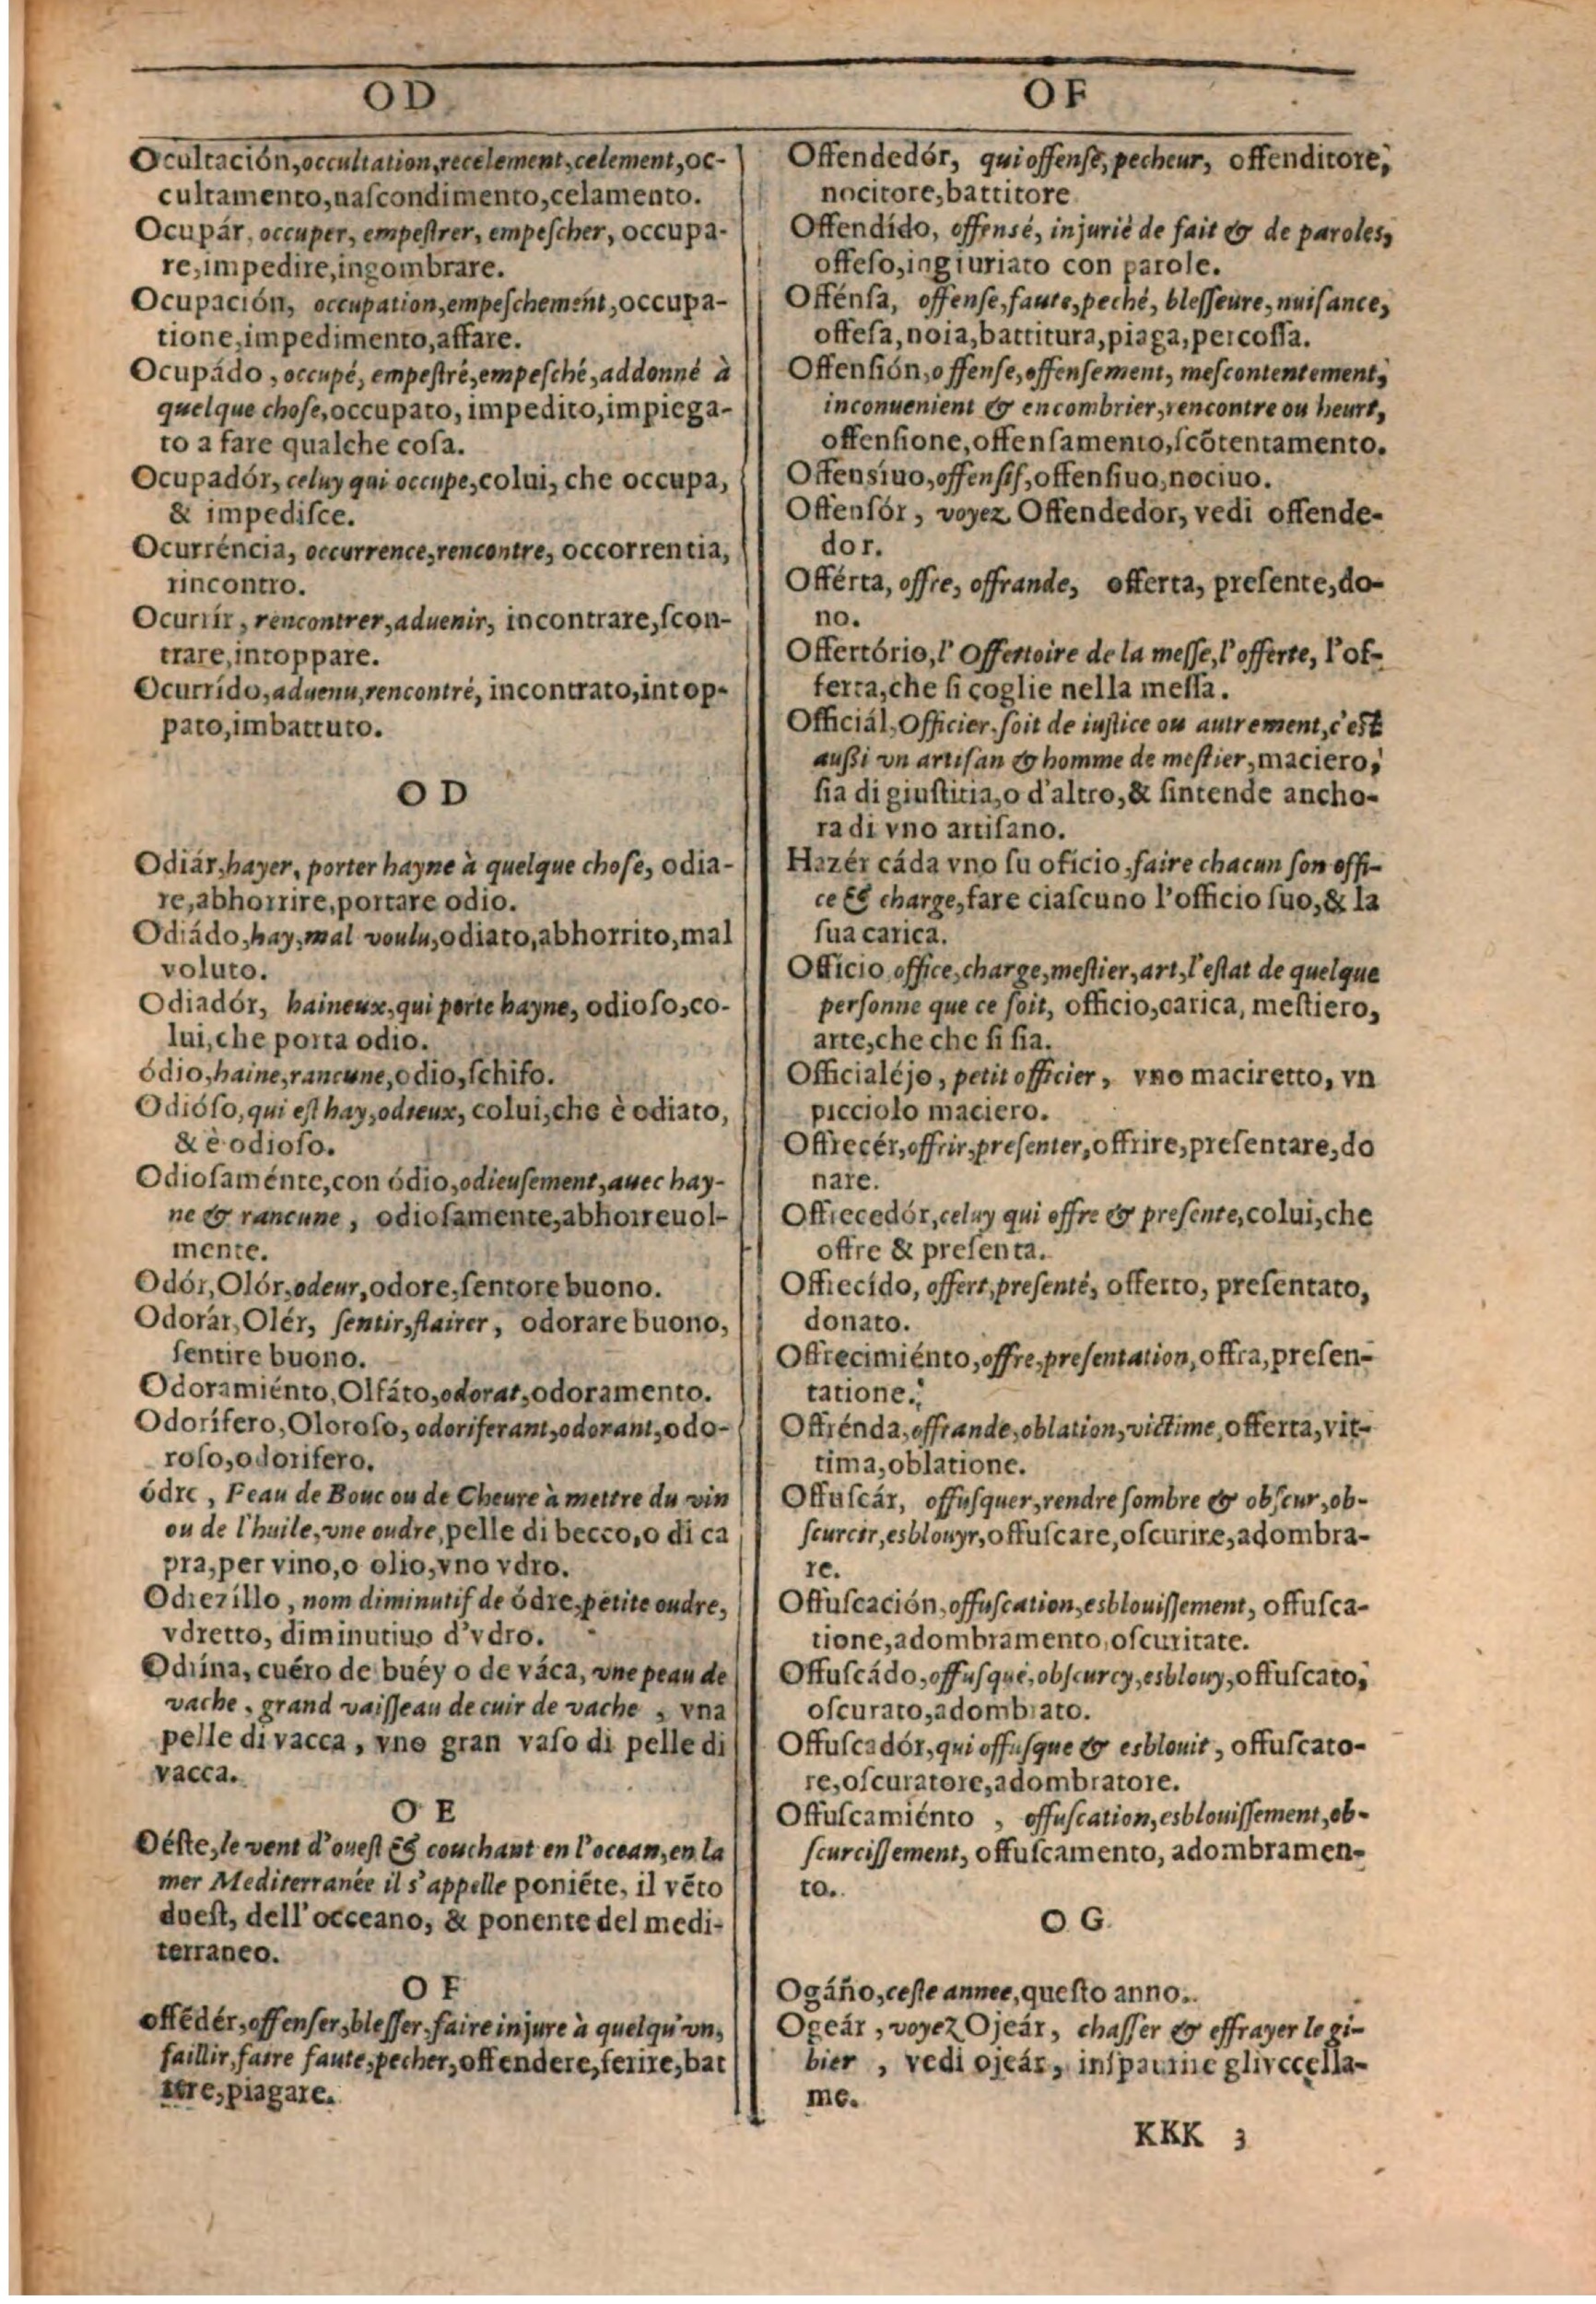 OD
OF
Ocultación, occultation, recelement, celement, oc-
cultamento, naſcondimento, celamento.
Ocupár, occuper, empeſtrer, empeſcher, occupa-
re, impedire, ingombrare.
Ocupación, occupation, empeſchement, occupa-
tione, impedimento, affare.
Ocupádo, occupé, empeſtré, empeſché, addonné à
quelque choſe, occupato, impedito, impiega-
to a fare qualche coſa.
Ocupadór, celuy qui occupe, colui, che occupa,
& impediſce.
Ocurréncia, occurrence, rencontre, occorrentia,
rincontro.
Ocurrír, rencontrer, aduenir, incontrare, ſcon-
trare, intoppare.
Ocurrído, aduenu, rencontré, incontrato, intop-
pato, imbattuto.
O D
Odiár, hayer, porter hayne à quelque choſe, odia-
re, abhorrire, portare odio.
Odiádo, hay, mal voulu, odiato, abhorrito, mal
voluto.
Odiadór, haineux, qui porte hayne, odioſo, co-
lui, che porta odio.
ódio, haine, rancune, odio, ſchifo.
Odióſo, qui eſt hay, odieux, colui, che è odiato,
& è odioſo.
Odioſaménte, con ódio, odieuſement, auec hay-
ne & rancune, odioſamente, abhorreuol-
mente.
Odór, Olór, odeur, odore, ſentore buono.
Odorár, Olér, ſentir, flairer, odorare buono,
ſentire buono.
Odoramiénto, Olfáto, odorat, odoramento.
Odorífero, Oloroſo, odoriferant, odorant, odo-
roſo, odorifero.
ódre, Peau de Bouc ou de Cheure à mettre du vin
ou de l'huile, vne oudre, pelle di becco, o di ca
pra, per vino, o olio, vno vdro.
Odrezíllo, nom diminutif de ódre, petite oudre,
vdretto, diminutiuo d'vdro.
Odrína, cuéro de buéy o de váca, vne peau de
vache, grand vaiſſeau de cuir de vache, vna
pelle di vacca, vno gran vaſo di pelle di
vacca.
O E
Oéſte, le vent d'oueſt & couchant en l'ocean, en la
mer Mediterranée il s'appelle poniẽte, il vẽto
doeſt, dell'occeano, & ponente del medi-
terraneo.
O F
offẽdér, offenſer, bleſſer, faire injure à quelqu'vn,
faillir, faire faute, pecher, offendere, ferire, bat
tere, piagare.
Offendedór, qui offenſe, pecheur, offenditore,
nocitore, battitore
Offendído, offensé, injurié de fait & de paroles,
offeſo, ingiuriato con parole.
Offénſa, offenſe, faute, peché, bleſſeure, nuiſance,
offeſa, noia, battitura, piaga, percoſſa.
Offenſión, offenſe, offenſement, meſcontentement,
inconuenient & encombrier, rencontre ou heurt,
offenſione, offenſamento, ſcõtentamento.
Offensíuo, offenſif, offenſiuo, nociuo.
Offenſór, voyez Offendedor, vedi offende-
dor.
Offérta, offre, offrande, offerta, preſente, do-
no.
Offertório, l'Offertoire de la meſſe, l'offerte, l'of-
ferta, che ſi coglie nella meſſa.
Officiál, Officier, ſoit de iuſtice ou autrement, c'eſt
außi vn artiſan & homme de meſtier, maciero,
ſia di giuſtitia, o d'altro, & ſintende ancho-
ra di vno artiſano.
Hazér cáda vno ſu ofício, faire chacun ſon offi-
ce & charge, fare ciaſcuno l'officio ſuo, & la
ſua carica.
Offício, office, charge, meſtier, art, l'eſtat de quelque
perſonne que ce ſoit, officio, carica, meſtiero,
arte, che che ſi ſia.
Officialéjo, petit officier, vno maciretto, vn
picciolo maciero.
Offrecér, offrir, preſenter, offrire, preſentare, do
nare.
Offrecedór, celuy qui offre & preſente, colui, che
offre & preſenta.
Offrecído, offert, preſenté, offerto, preſentato,
donato.
Offrecimiénto, offre, preſentation, offra, preſen-
tatione.
Offrénda, offrande, oblation, victime, offerta, vit-
tima, oblatione.
Offuſcár, offuſquer, rendre ſombre & obſcur, ob-
ſcurcir, esblouyr, offuſcare, oſcurire, adombra-
re.
Offuſcación, offuſcation, esblouiſſement, offuſca-
tione, adombramento, oſcuritate.
Offuſcádo, offuſqué, obſcurcy, esblouy, offuſcato,
oſcurato, adombrato.
Offuſcadór, qui offuſque & esblouit, offuſcato-
re, oſcuratore, adombratore.
Offuſcamiénto, offuſcation, esblouiſſement, ob-
ſcurciſſement, offuſcamento, adombramen-
to.
O G.
Ogáño, ceſte annee, queſto anno.
Ogeár, voyez Ojeár, chaſſer & effrayer le gi-
bier, vedi ojeár, inſpaurire gli vccella-
me.
KKK 3